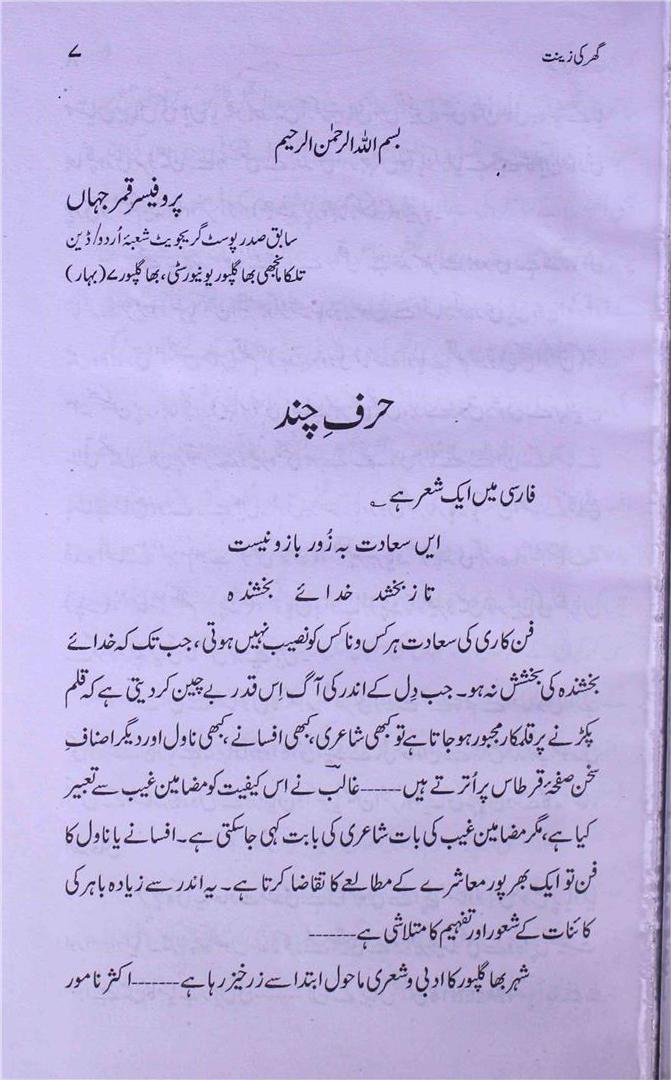 گھر کی زینت ۷
بسم اللہ الرحمٰن الرحیم
پروفیسر قمر جہاں
سابق صدر پوسٹ گریجویٹ شعبۂ اُردو/ڈین
تلکا مانجھی بھاگلپور یونیورسٹی، بھاگلپور ۷ (بہار)
حرفِ چند
فارسی میں ایک شعر ہے ؎
ایں سعادت بہ زُور بازو نیست
تا نہ بخشد خدائے بخشندہ
فن کاری کی سعادت ہر کس و ناکس کو نصیب نہیں ہوتی، جب تک کہ خدائے
بخشندہ کی بخشش نہ ہو۔ جب دِل کے اندر کی آگ اِس قدر بے چین کر دیتی ہے کہ قلم
پکڑنے پر قلمکار مجبور ہو جاتا ہے تو کبھی شاعری، کبھی افسانے، کبھی ناول اور دیگر اصنافِ
سخن صفحۂ قرطاس پر اُترتے ہیں ------ غالبؔ نے اس کیفیت کو مضامین غیب سے تعبیر
کیا ہے، مگر مضامین غیب کی بات شاعری کی بابت کہی جا سکتی ہے۔ افسانے یا ناول کا
فن تو ایک بھر پور معاشرے کے مطالعے کا تقاضا کرتا ہے۔ یہ اندر سے زیادہ باہر کی
کائنات کے شعور اور تفہیم کا متلاشی ہے ------
شہر بھاگلپور کا ادبی و شعری ماحول ابتدا سے زرخیز رہا ہے ------ اکثر نامور